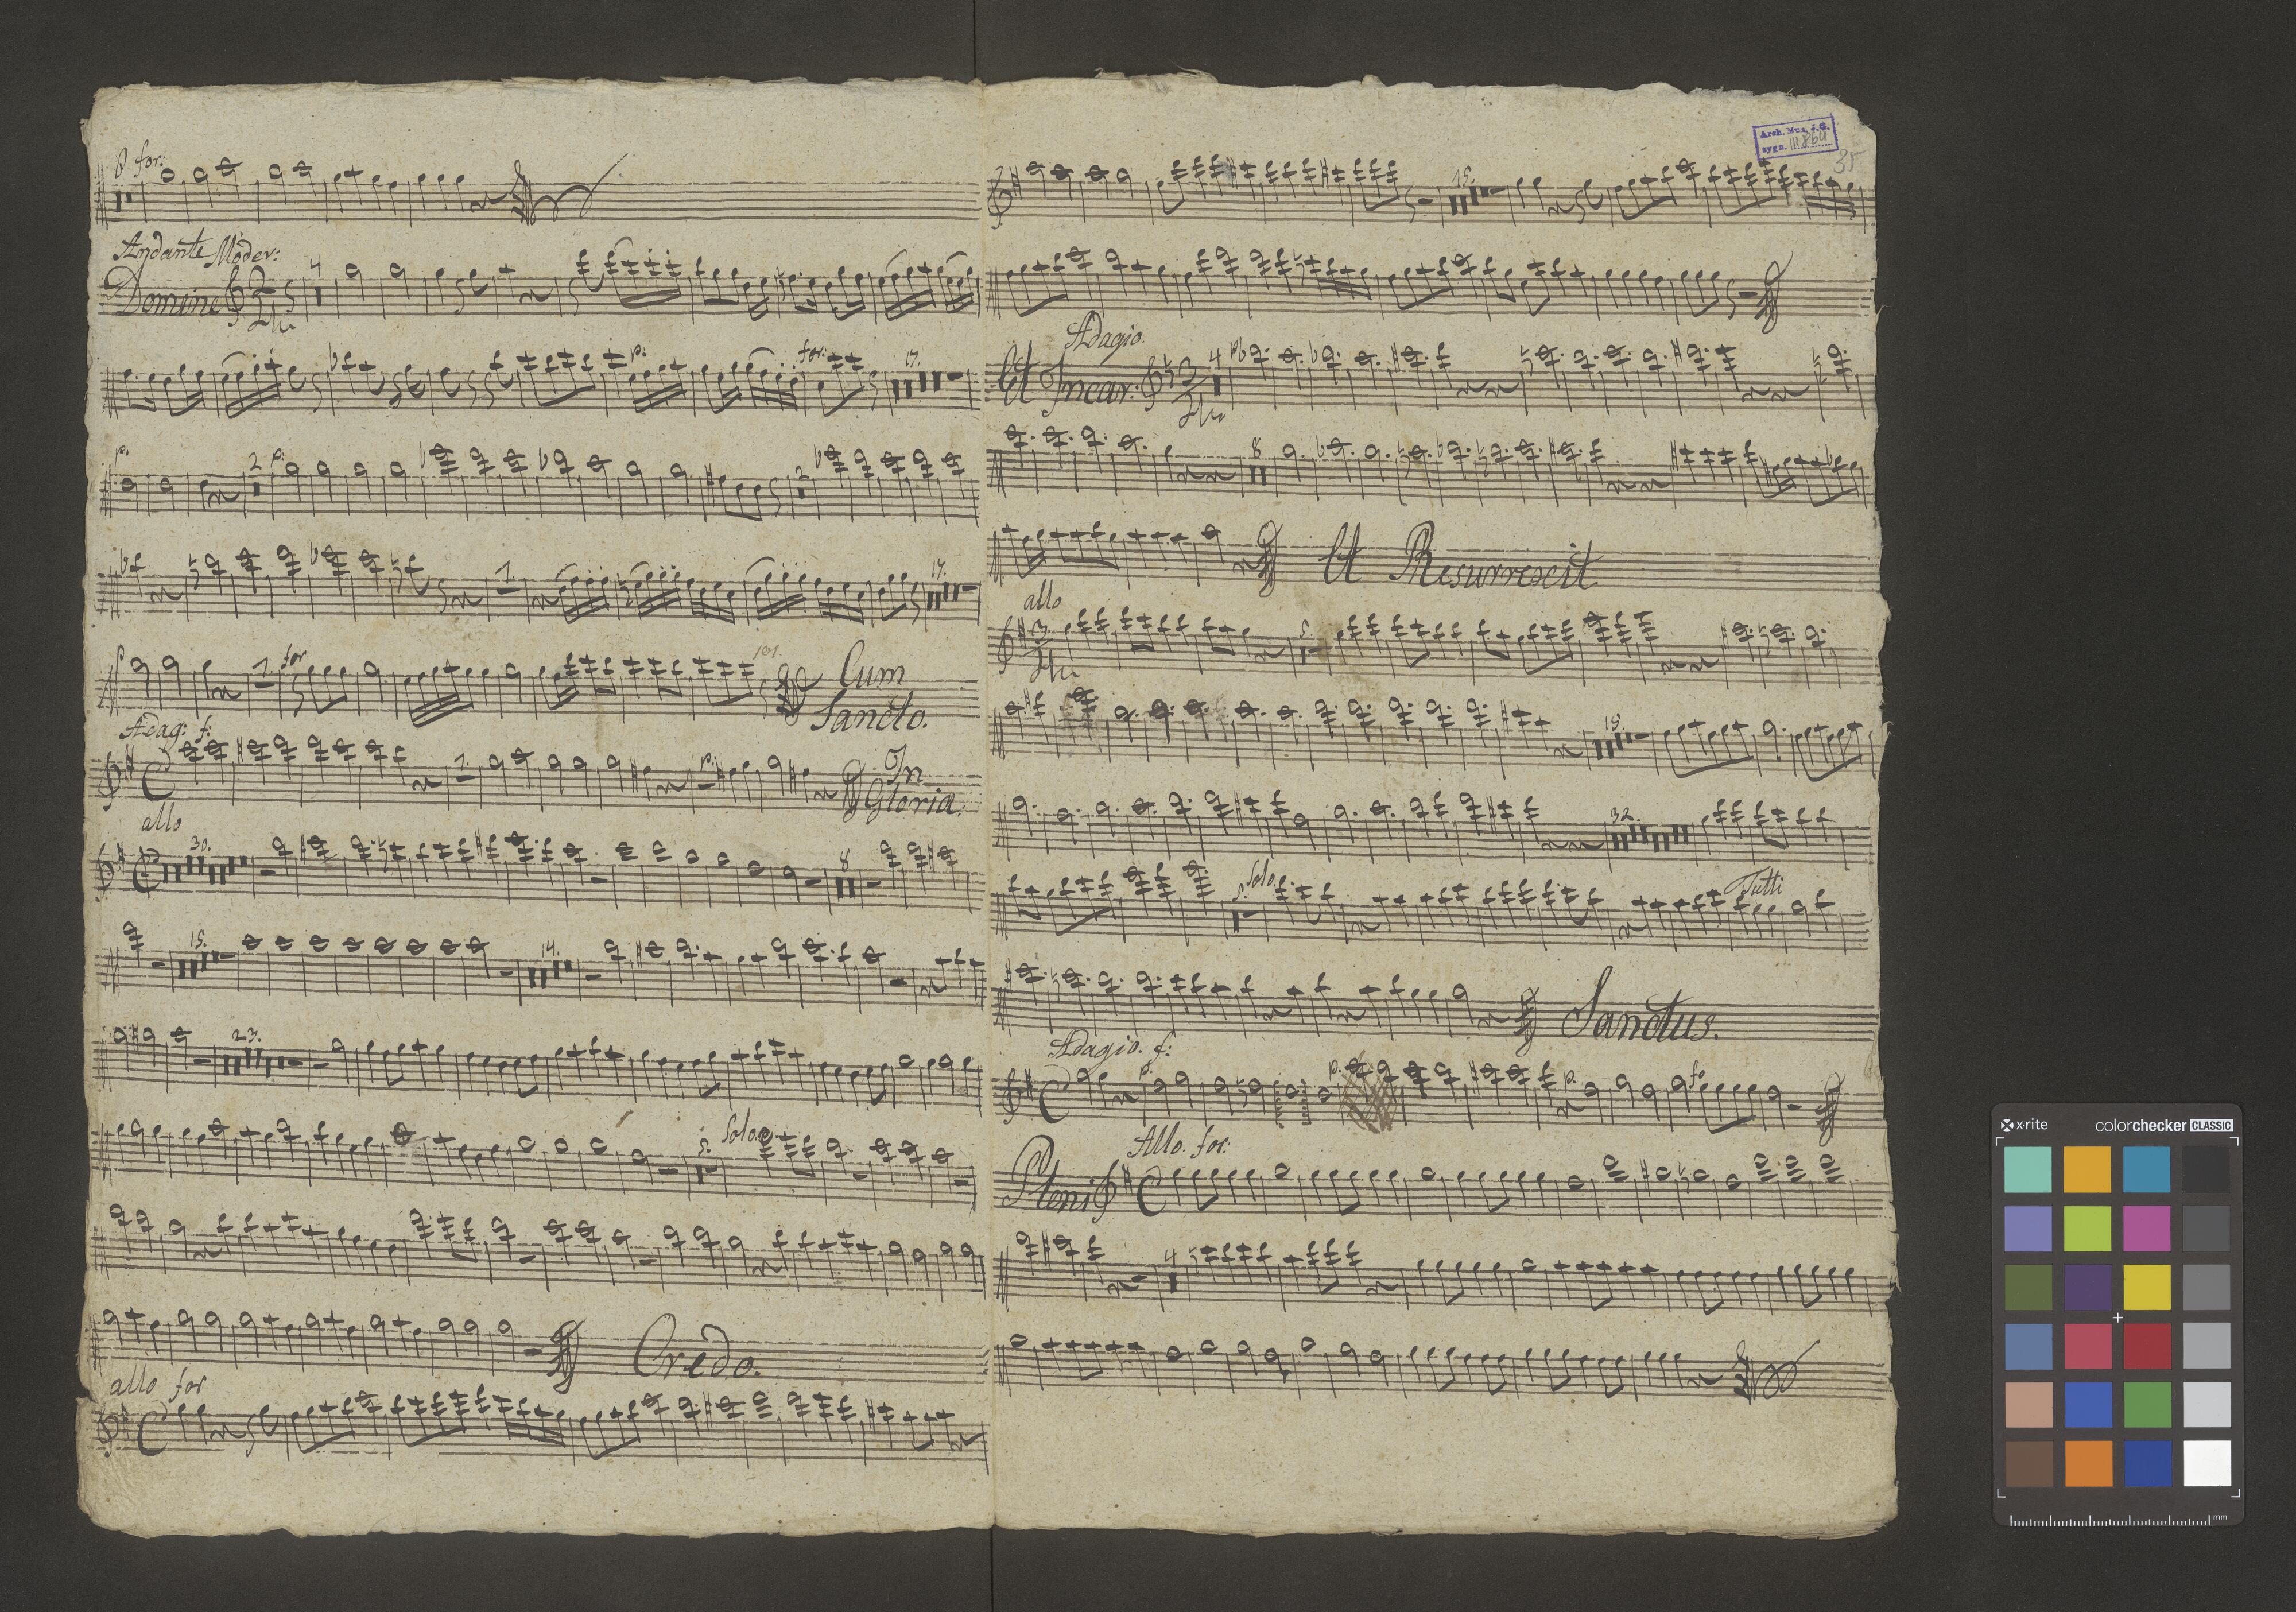 8 for:
Andante Moder:
Domine 4
p. for: 17.
p. 2 p. 2
1 17.
p 1. for Cum
Sancto.
Adag: f:
1. p. In
Gloria.
allo
30. 8
15. 14.
23.
5. Solo.
Credo.
allo for
Arch. Mus. J.G.
sygn. III 864
35
15.
Adagio.
Et Incar: 3 4 p
8
Et Resurrexit
allo
3 5.
15.
32.
5. Solo. Tutti
Sanctus.
Adagio. f:
p. p. p. fo
Allo. for:
Pleni
4
x-rite colorchecker CLASSIC
mm